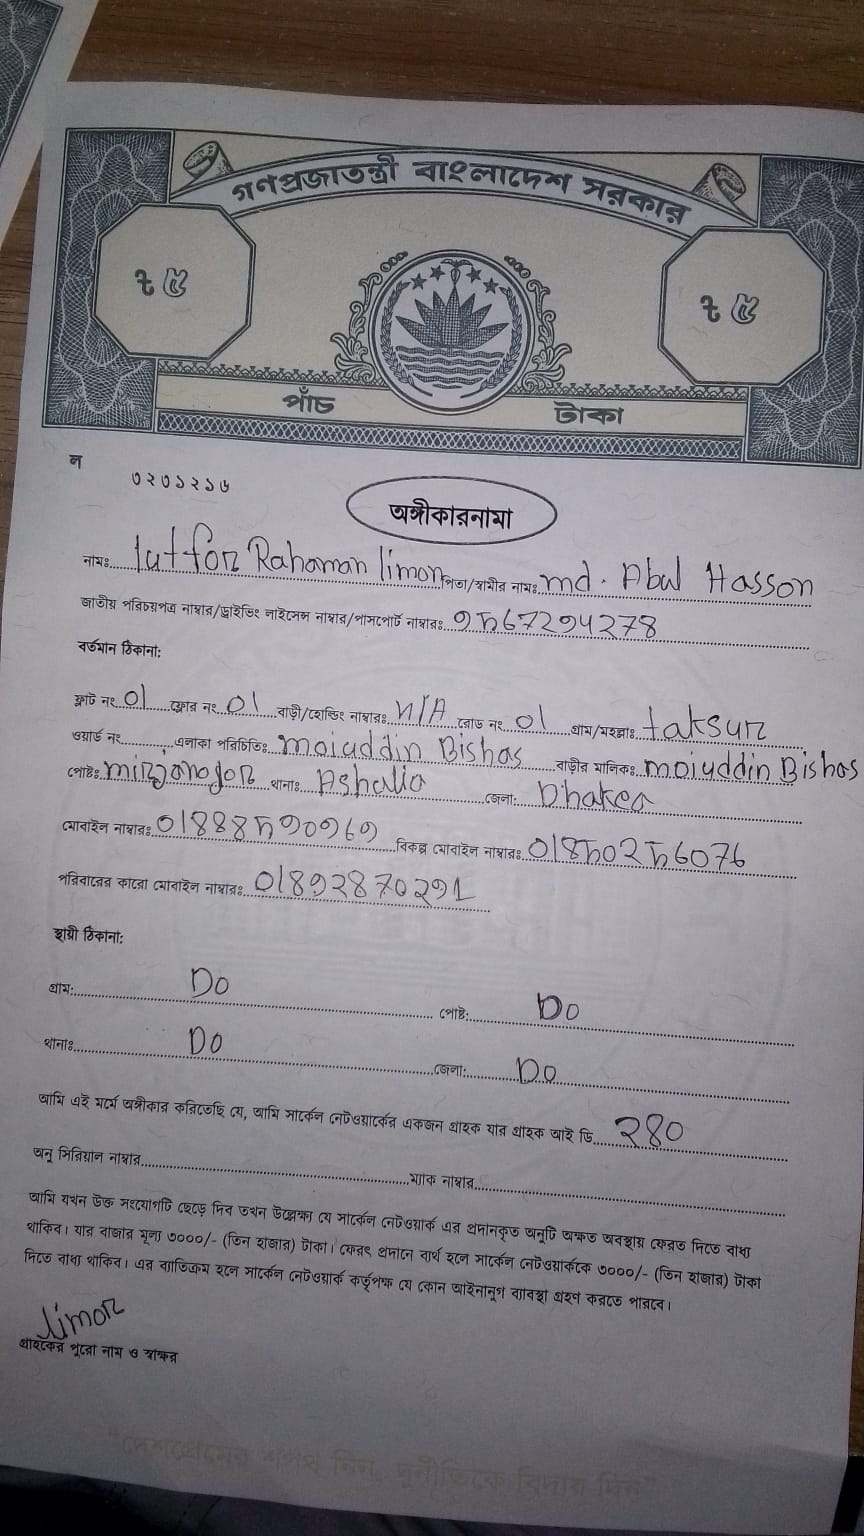 গণপ্রজাতন্ত্রী বাংলাদেশ সরকার
৳ ৫
৳ ৫
পাঁচ টাকা
ন
৩২০১২১৬
অঙ্গীকারনামা
নামঃ lutfor Rahaman limon পিতা/স্বামীর নামঃ md. Abul Hasson
জাতীয় পরিচয়পত্র নাম্বার/ড্রাইভিং লাইসেন্স নাম্বার/পাসপোর্ট নাম্বারঃ 9567294278
বর্তমান ঠিকানা:
ফ্লাট নং 01 ফ্লোর নং 01 বাড়ী/হোল্ডিং নাম্বারঃ N/A রোড নং 01 গ্রাম/মহল্লাঃ taksur
ওয়ার্ড নং এলাকা পরিচিতিঃ moiuddin Bishas বাড়ীর মালিকঃ moiuddin Bishas
পোষ্টঃ mirzanogor থানাঃ Ashulia জেলা: Dhakea
মোবাইল নাম্বারঃ 01888590969 বিকল্প মোবাইল নাম্বারঃ 01850256076
পরিবারের কারো মোবাইল নাম্বারঃ 01892870291
স্থায়ী ঠিকানা:
গ্রাম: Do পোষ্ট: Do
থানাঃ Do জেলা: Do
আমি এই মর্মে অঙ্গীকার করিতেছি যে, আমি সার্কেল নেটওয়ার্কের একজন গ্রাহক যার গ্রাহক আই ডি 280
অনু সিরিয়াল নাম্বার ম্যাক নাম্বার
আমি যখন উক্ত সংযোগটি ছেড়ে দিব তখন উল্লেক্ষ্য যে সার্কেল নেটওয়ার্ক এর প্রদানকৃত অনুটি অক্ষত অবস্থায় ফেরত দিতে বাধ্য
থাকিব। যার বাজার মূল্য ৩০০০/- (তিন হাজার) টাকা। ফেরৎ প্রদানে ব্যর্থ হলে সার্কেল নেটওয়ার্ককে ৩০০০/- (তিন হাজার) টাকা
দিতে বাধ্য থাকিব। এর ব্যাতিক্রম হলে সার্কেল নেটওয়ার্ক কর্তৃপক্ষ যে কোন আইনানুগ ব্যাবস্থা গ্রহণ করতে পারবে।
limor
গ্রাহকের পুরো নাম ও স্বাক্ষর
"দেশপ্রেমের শপথ নিন, দুর্নীতিকে বিদায় দিন"